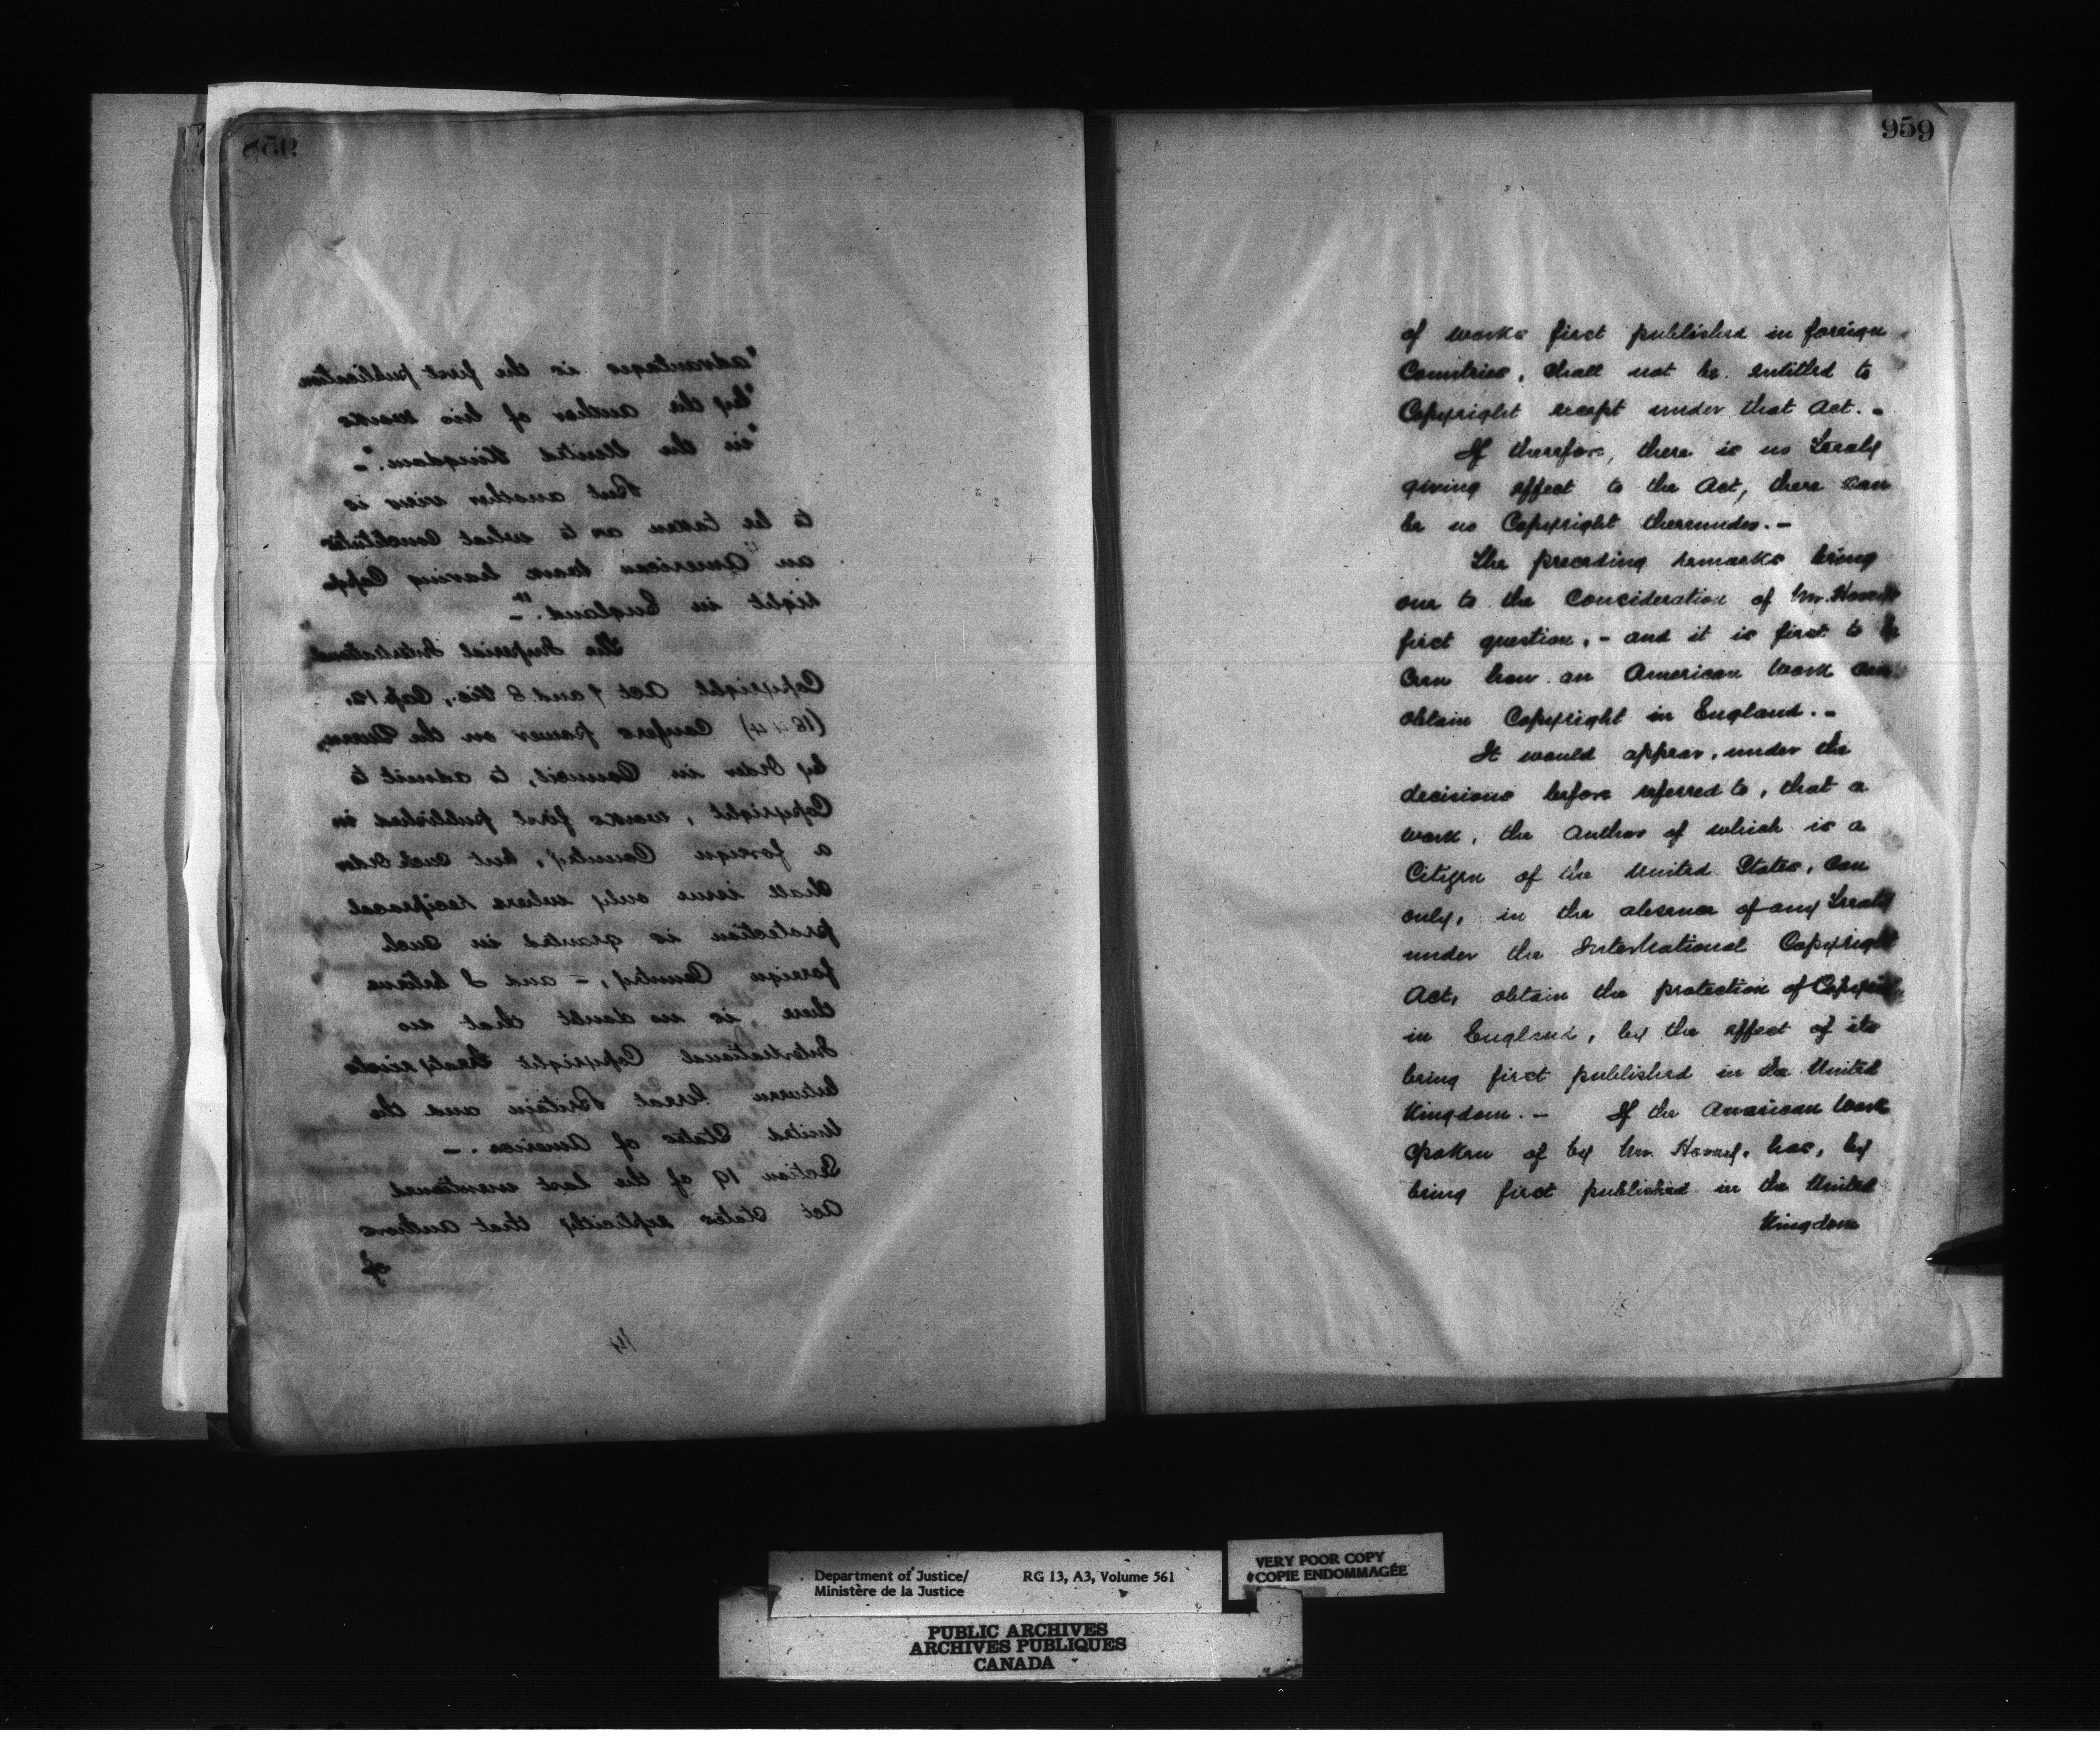 958
"advantages is the first publication
"by the author of his works
"in the United Kingdom."-
But another view is
to be taken as to what Constitutes
an "American work having Copy-
right in England."-
The Imperial International
Copyright Act 7 and 8 Vic., Cap 12,
(1844) Confers power on the Queen,
by Order in Council, to admit to
Copyright, works first published in
a foreign Country, but such Order
shall issue only where reciprocal
protection is granted in such
foreign Country, - and I believe
there is no doubt that no
International Copyright treaty exists
between Great Britain and the
United States of America. -
Section 19 of the last mentioned
Act States explicitly that authors
of
14
959
of works first published in foreign
Countries, shall not be entitled to
Copyright except under that Act. -
If therefore, there is no Treaty
giving effect to the Act, there can
be no Copyright thereunder. -
The preceding remarks bring
one to the Consideration of Mr.
first question, - and it is first to be
seen how an American work can
obtain Copyright in England. -
It would appear, under the
decisions before referred to, that a
work, the author of which is a
Citizen of the United States, can
only, in the absence of any Treaty
under the International Copyright
Act, obtain the protection of Copyright
in England, by the effect of its
being first published in the United
Kingdom. - If the American work
spoken of by Mr. has, by
being first published in the United
Kingdom
15
Department of Justice/ RG 13, A3, Volume 561
Ministère de la Justice
VERY POOR COPY
COPIE ENDOMMAGÉE
PUBLIC ARCHIVES
ARCHIVES PUBLIQUES
CANADA